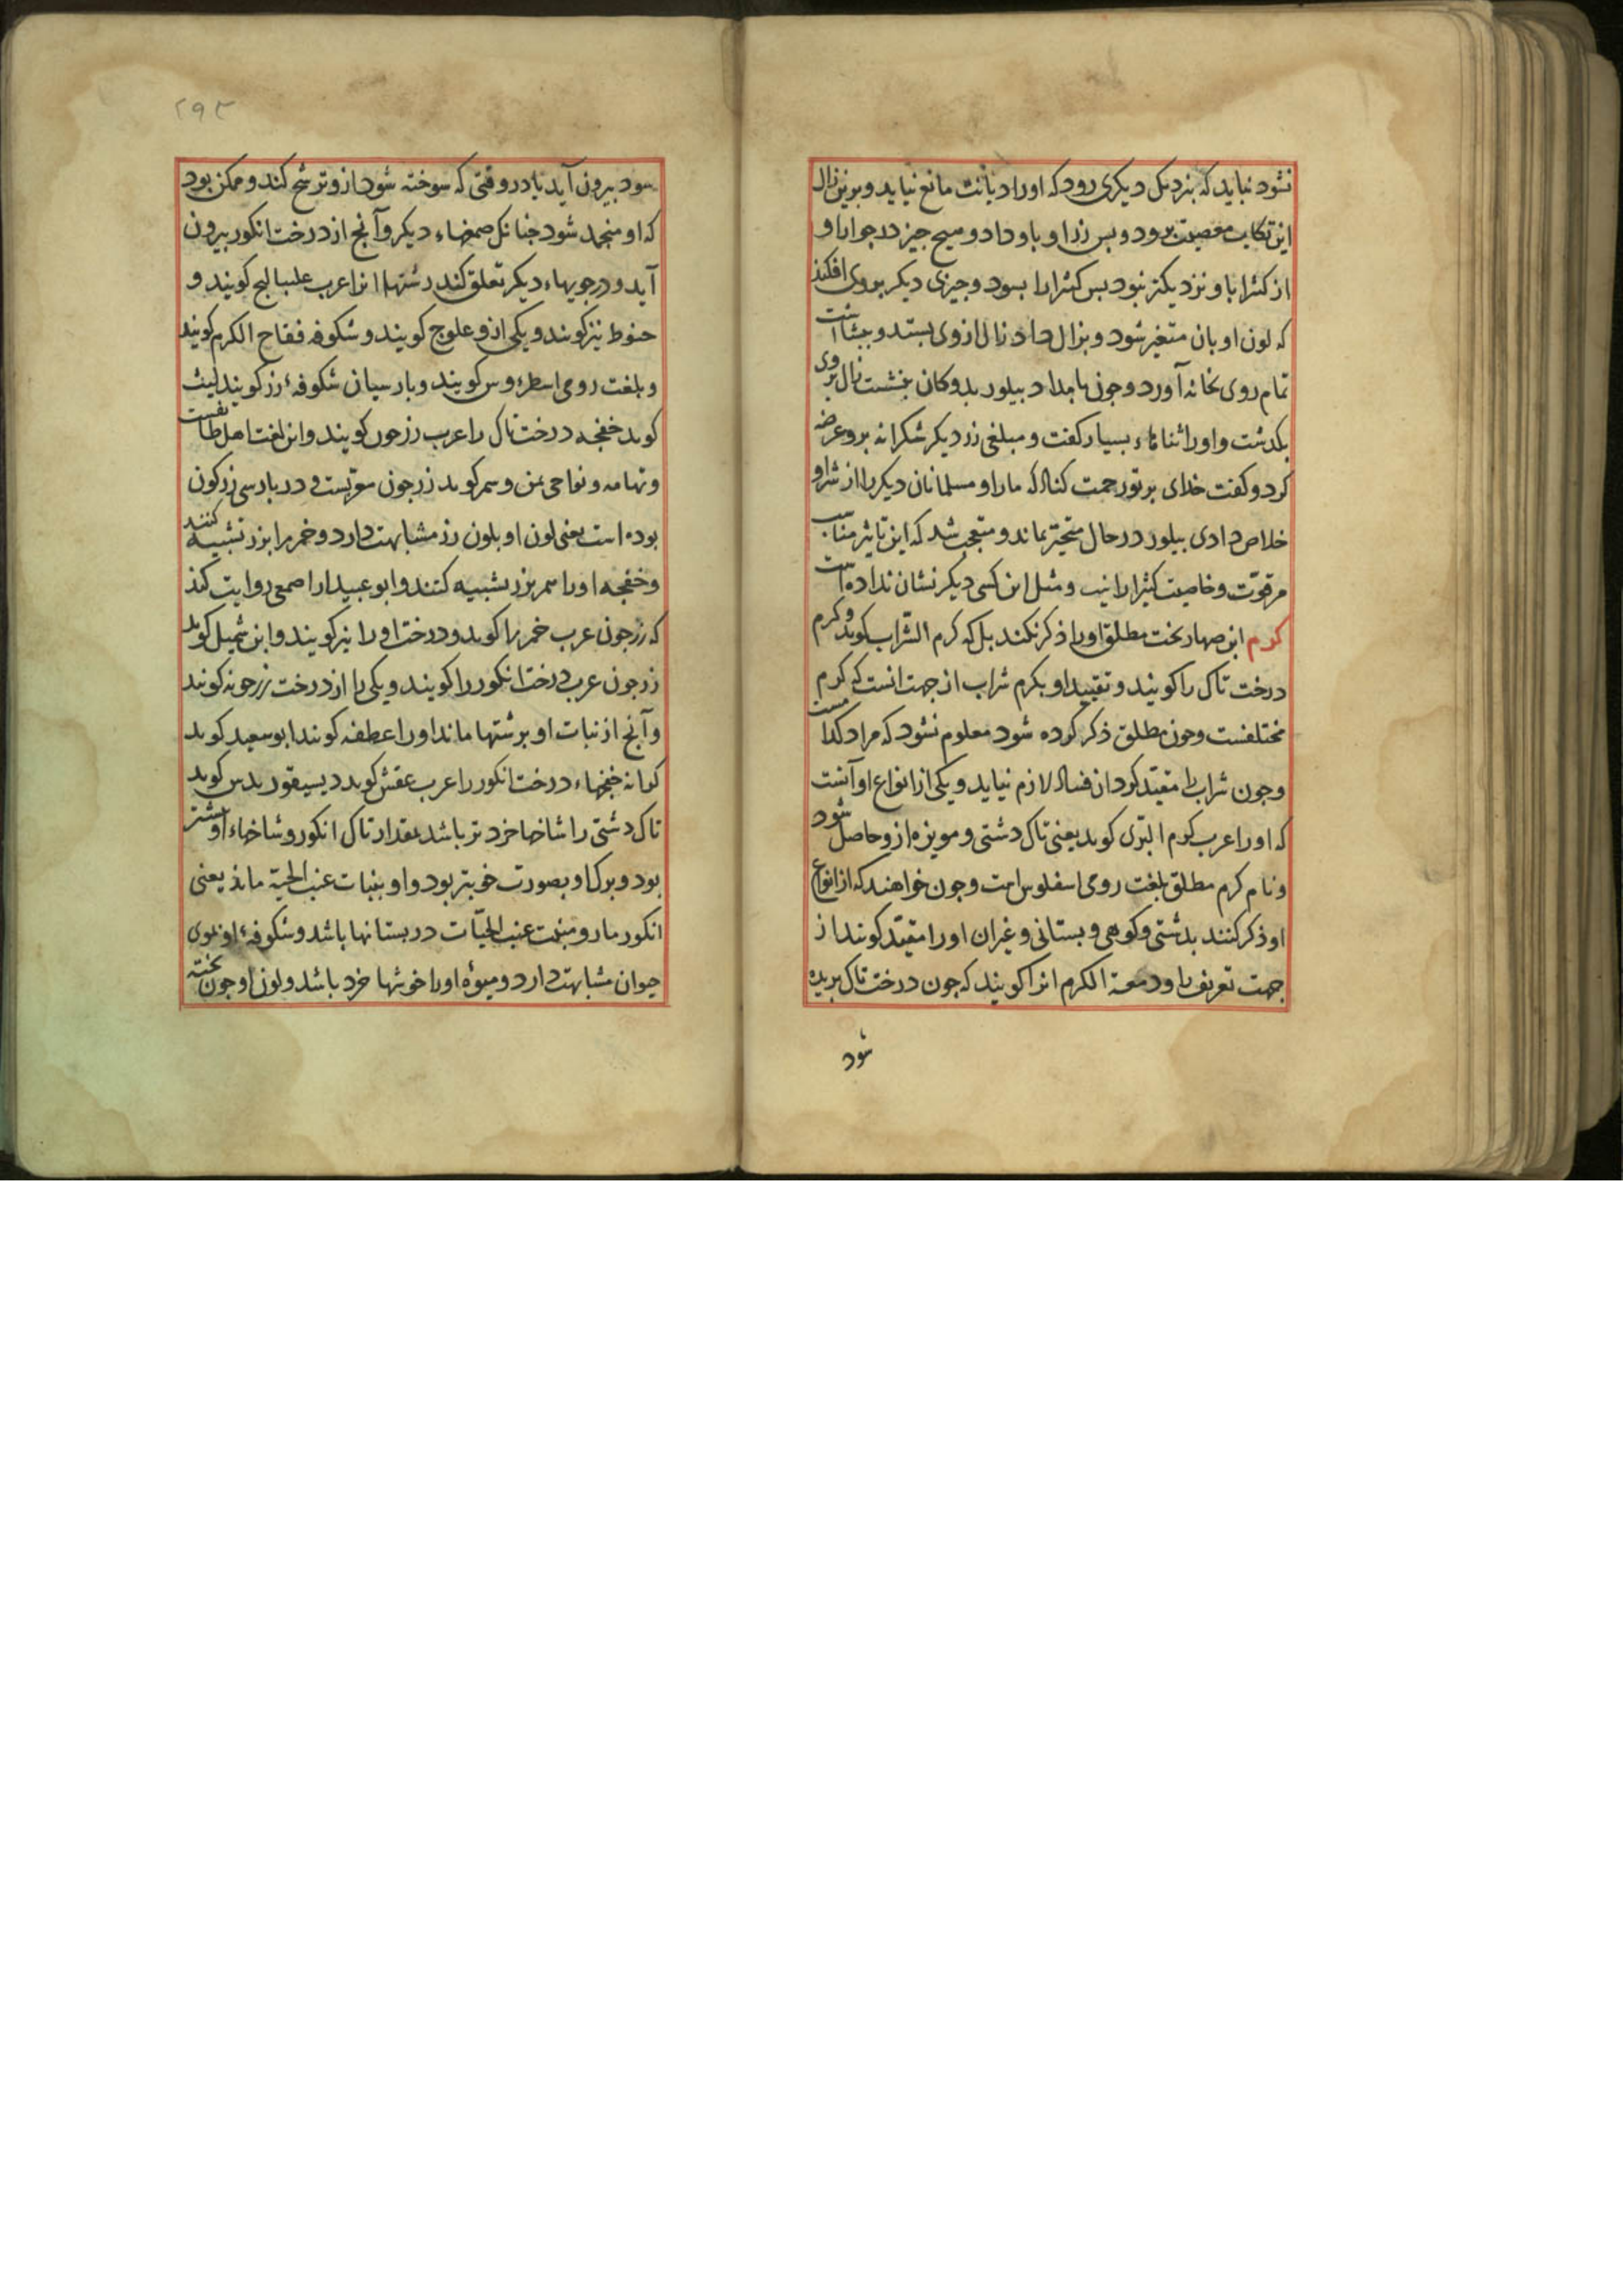 نشود نباید که بنزدیک دیکری رود که اورا دیانت مانع نیاید و برین زال
این تکاب معصیت برود و بس زر او باو داد و هیچ جیز در جوار او
از کثیرا باو نزدیکتر نبود بس کثیرا را بسود و جیزی دیکر بروی افکند
که لون او بان متغیر شود و بزال داد زال ازوی بستد و ببشاشت
تمام روی بخانه آورد و جون بامداد بیلور بدوکان بنشست زال بروی
بکذشت و اورا ثناهاء بسیار کفت و مبلغی زر دیکر شکرانه برو عرضه
کرد و کفت خدای بر تو رحمت کناد که ما را و مسلمانان دیکر را از شر او
خلاص دادی بیلور در حال متحیر بماند و متعجب شد که این تاثیر مناسب
مر قوّت و خاصیت کثیرا را نیست و مثل این کسی دیکر نشان نداده است
کرم ابن صهاربخت مطلق اورا ذکر نکند بل که کرم الشراب کوید و کرم
درخت تاک را کویند و تقیید او بکرم شراب از جهت انست که کرم
مختلفست و جون مطلق ذکر کرده شود معلوم نشود که مراد کدامست
و جون شراب را مقیّد کرد ان فساد لازم نیاید و یکی از انواع او آنست
که اورا عرب کرم البرّی کوید یعنی تاک دشتی و مویزه ازو حاصل شود
و نام کرم مطلق بلغت رومی اسفلوس است و جون خواهند که از انواع
او ذکر کنند بدشتی و کوهی و بستانی و غیر ان اورا مقیّد کویند از
جهت تعریف را و دمعة الکرم انرا کویند که جون درخت تاک بریده
شود
۲۹۳
شود بیرون آید یا در وقتی که سوخته شود ازو ترشح کند و ممکن بود
که او منجمد شود جنانک صمغهاء دیکر و آنج از درخت انکور بیرون
آید و در جوبهاء دیکر تعلق کند رشتها انرا عرب کویند و
خیوط نیز کویند و یکی ازو کویند و شکوفه فقاح الکرم کویند
و بلغت رومی کویند و بارسیان شکوفهٔ رز کویند لیث
کوید خفجه درخت تاک را عرب زرجون کویند و این لغت اهل طائفست
و تهامه و نواحی یمن و شمر کوید زرجون معربست و در بارسی زرکون
بوده است یعنی لون او بلون زر مشابهت دارد و خمر را بزر تشبیه کنند
و خفجه اورا هم بزر تشبیه کنند و ابو عبید از اصمعی روایت کند
که زرجون عرب خمر را کوید و درخت او را نیز کویند و ابن شمیل کوید
زرجون عرب درخت انکور را کویند و یکی را از درخت زرجونه کویند
و آنج از نبات او برشتها ماند اورا عطفه کویند ابو سعید کوید
کرانه خفجهاء درخت انکور را عرب عقش کوید دیسیقوریدس کوید
تاک دشتی را شاخها خردتر باشد بمقدار تاک انکور و شاخهاء او بیشتر
بود و برک او بصورت خوبتر بود و او بنبات عنب الحیّة ماند یعنی
انکور مار و منبت عنب الحیّات در بستانها باشد و شکوفهٔ او بموی
حیوان مشابهت دارد و میوهٔ اورا خوشها خرد باشد و لون او جون بخته